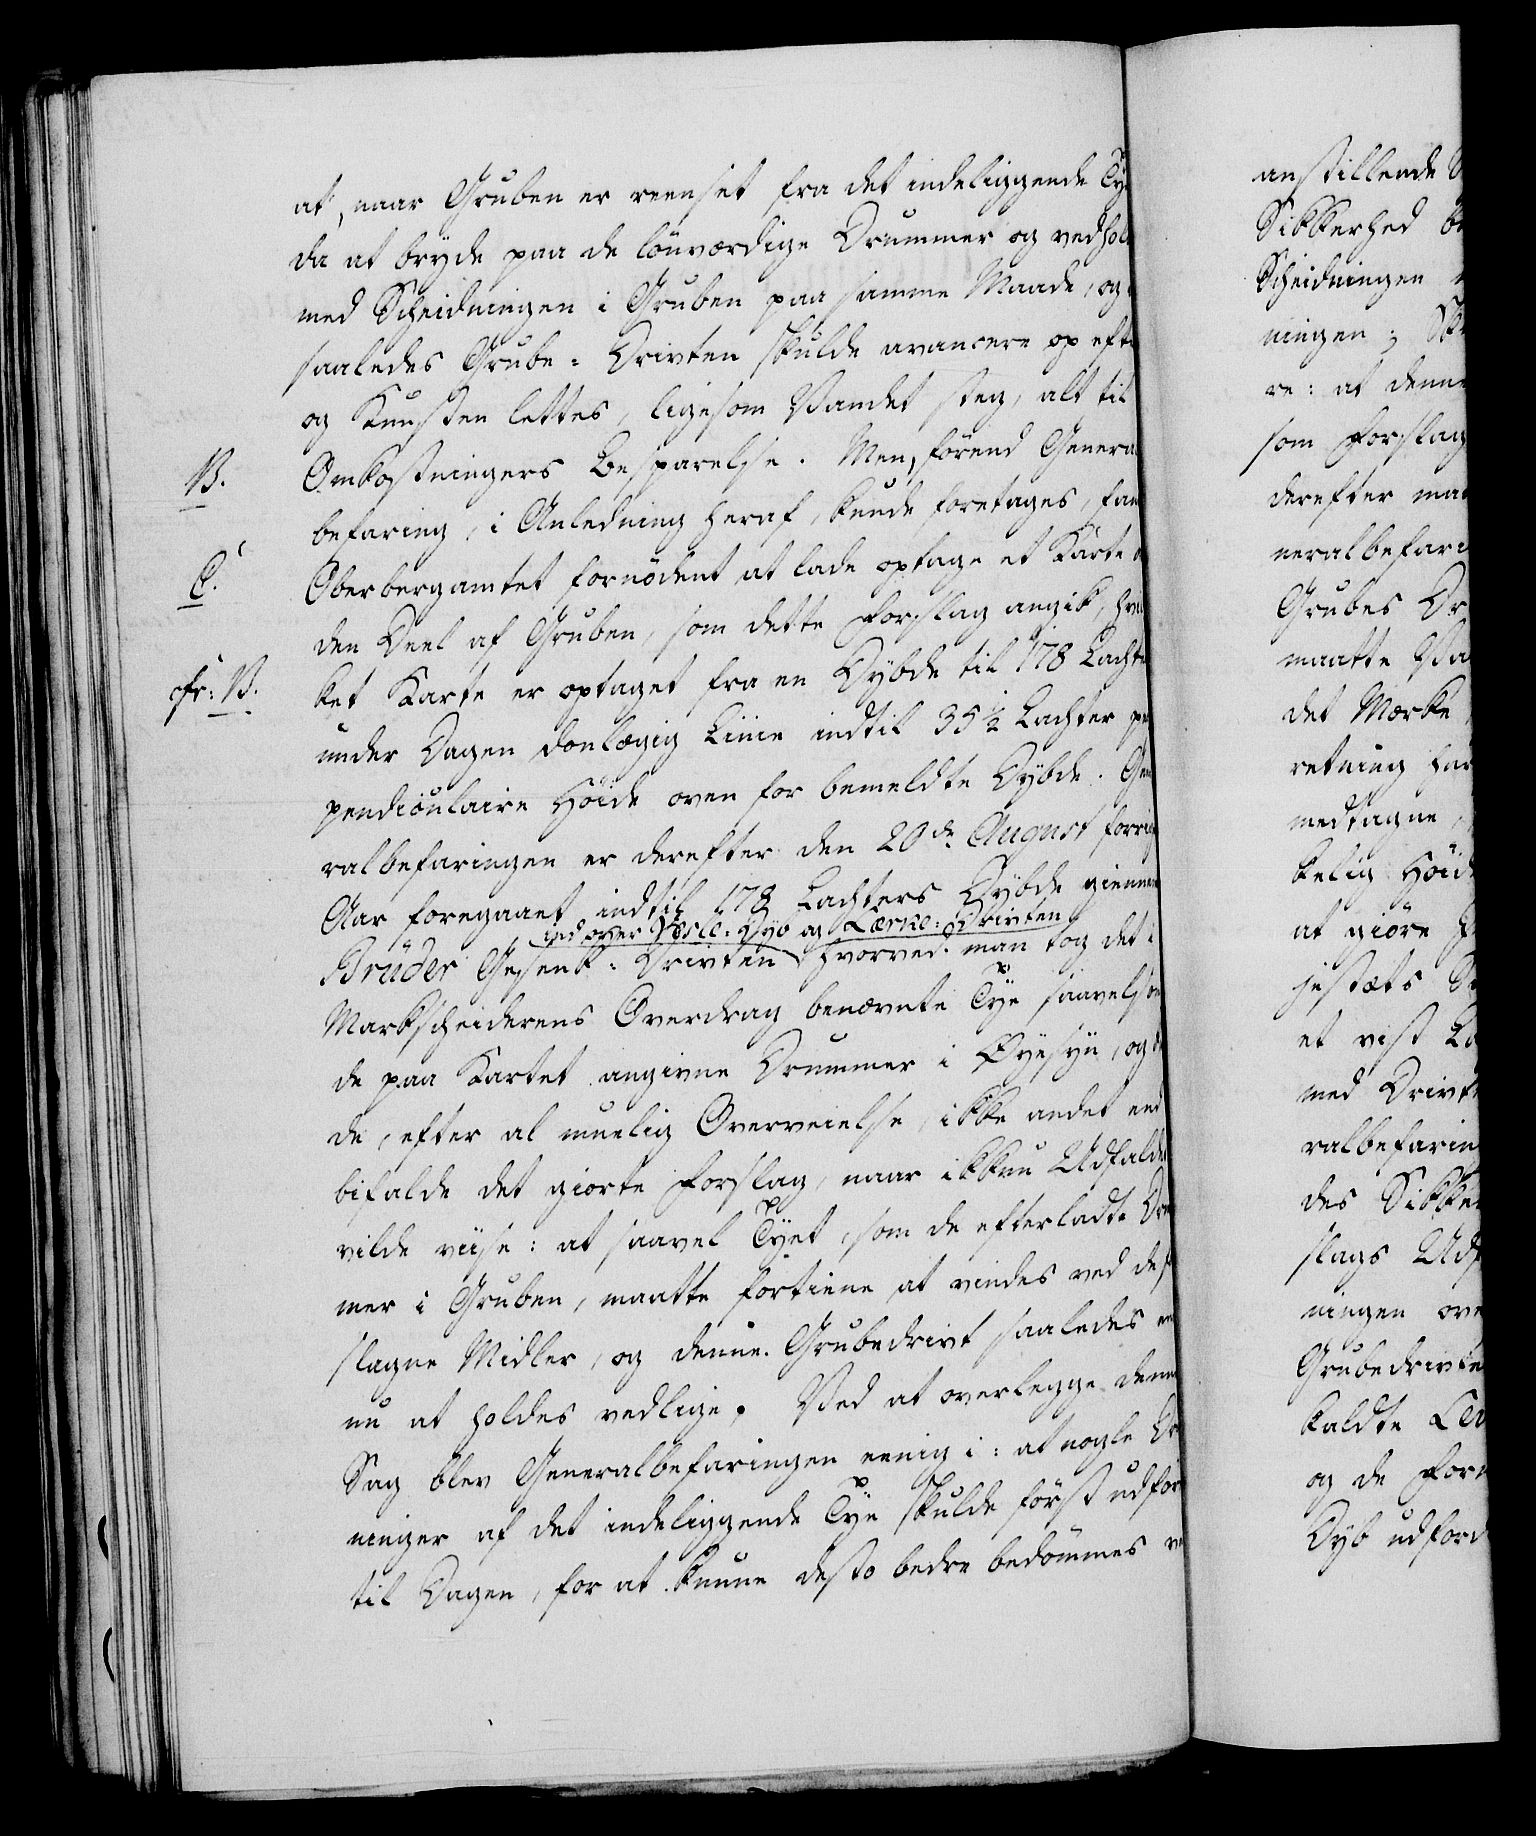 at, naar Gruben er reenset fra det indeliggende Tye
da at bryde paa de lönværdige Drummer og vedhol
med Scheidningen i Gruben paa samme Maade, og
saaledes Grube-Drivten skulde avancere op efte
og Kunsten lettes, ligesom Vandet steg, alt til
B. Omkostningers Besparelse. Men, förend Genera
befaring, i Anledning heraf, kunde foretages, fan
C. Oberbergamtet fornödent at lade optage et Karte
den Deel af Gruben, som dette Forslag angik, hvil
cfr: B. ket Karte er optaget fra en Dybde til 178 Lachte
under Dagen donlægig Linie indtil 35 1/2 Lachter per
pendiculaire Höide oven for bemeldte Dybde. Gene
ralbefaringen er derefter den 20de August forrige
Aar foregaaet indtil 178 Lachters Dybde giennem
ind over Vesle-Dyb og Lærke-Drivten
Brüder Gesenk-Drivten hvorved man tog det i
Markscheiderens Overdrag benævnte Tye saavelsom
de paa Kartet angivne Drummer i Øyesyn, og
de, efter al muelig Overveielse, ikke andet end
bifalde det giorte Forslag, naar ikkun Udfaldet
vilde viise: at saavel Tyet, som de efterladte Drum
mer i Gruben, maatte fortiene at vindes ved de f
slagne Midler, og denne Grubedrivt saaledes en
nu at holdes vedlige. Ved at overlegge denne
Sag blev Generalbefaringen eenig i: at nogle Dr
ninger af det indeliggende Tye skulde först udför
til Dagen, for at kunne desto bedre bedömmes ve
anstillende
Sikkerhed be
Scheidningen
ningen; Sk
re: at denne
som Forslag
derefter maa
neralbefari
Grubes Dr
maatte Va
det Mærke
retning har
medtagne
kelig Höide
at giöre
jestæts
et vist La
med Drivt
ralbefarin
des Sikker
slags Udf
ningen ove
Grubedrivte
kaldte
og de For
Dyb udford